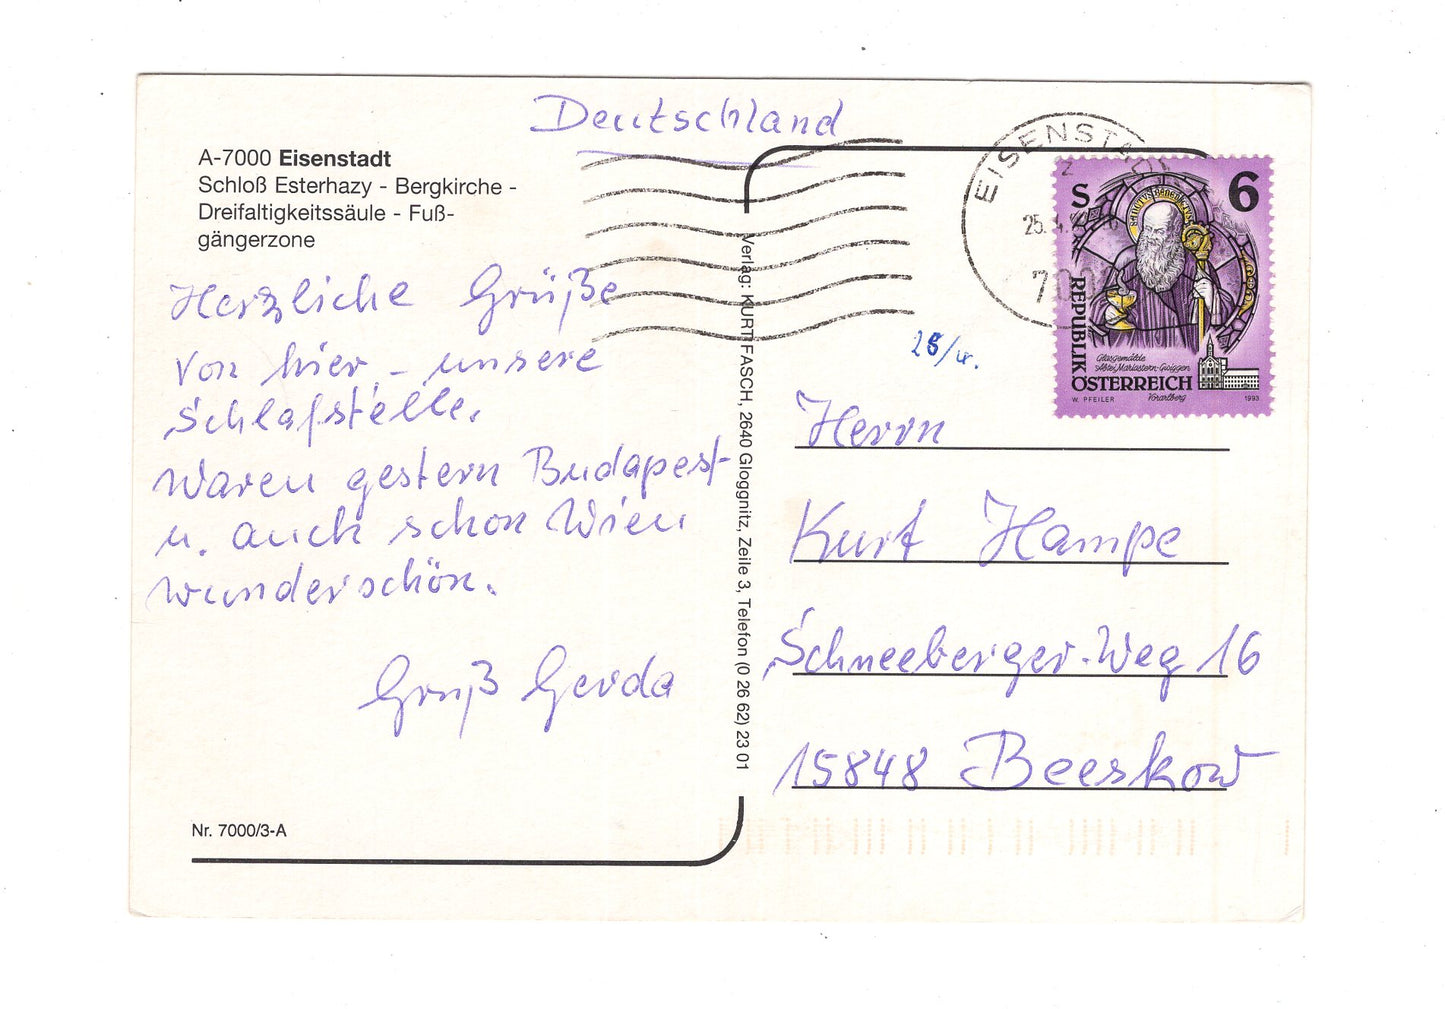 Deutschland
A-7000 Eisenstadt
Schloß Esterhazy - Bergkirche -
Dreifaltigkeitssäule - Fuß-
gängerzone
Herzliche Grüße
von hier - unsere
Schlafstelle.
Waren gestern Budapest
u. auch schon Wien
wunderschön.
Gruß Gerda
Nr. 7000/3-A
Verlag: KURT FASCH, 2640 Gloggnitz, Zeile 3, Telefon (0 26 62) 23 01
EISENSTADT
25. 4.
S 6
REPUBLIK
Glasgemälde
Abtei Mariastern-Gwiggen
ÖSTERREICH
W. PFEILER Vorarlberg 1993
Herrn
Kurt Hampe
Schneeberger-Weg 16
15848 Beeskow